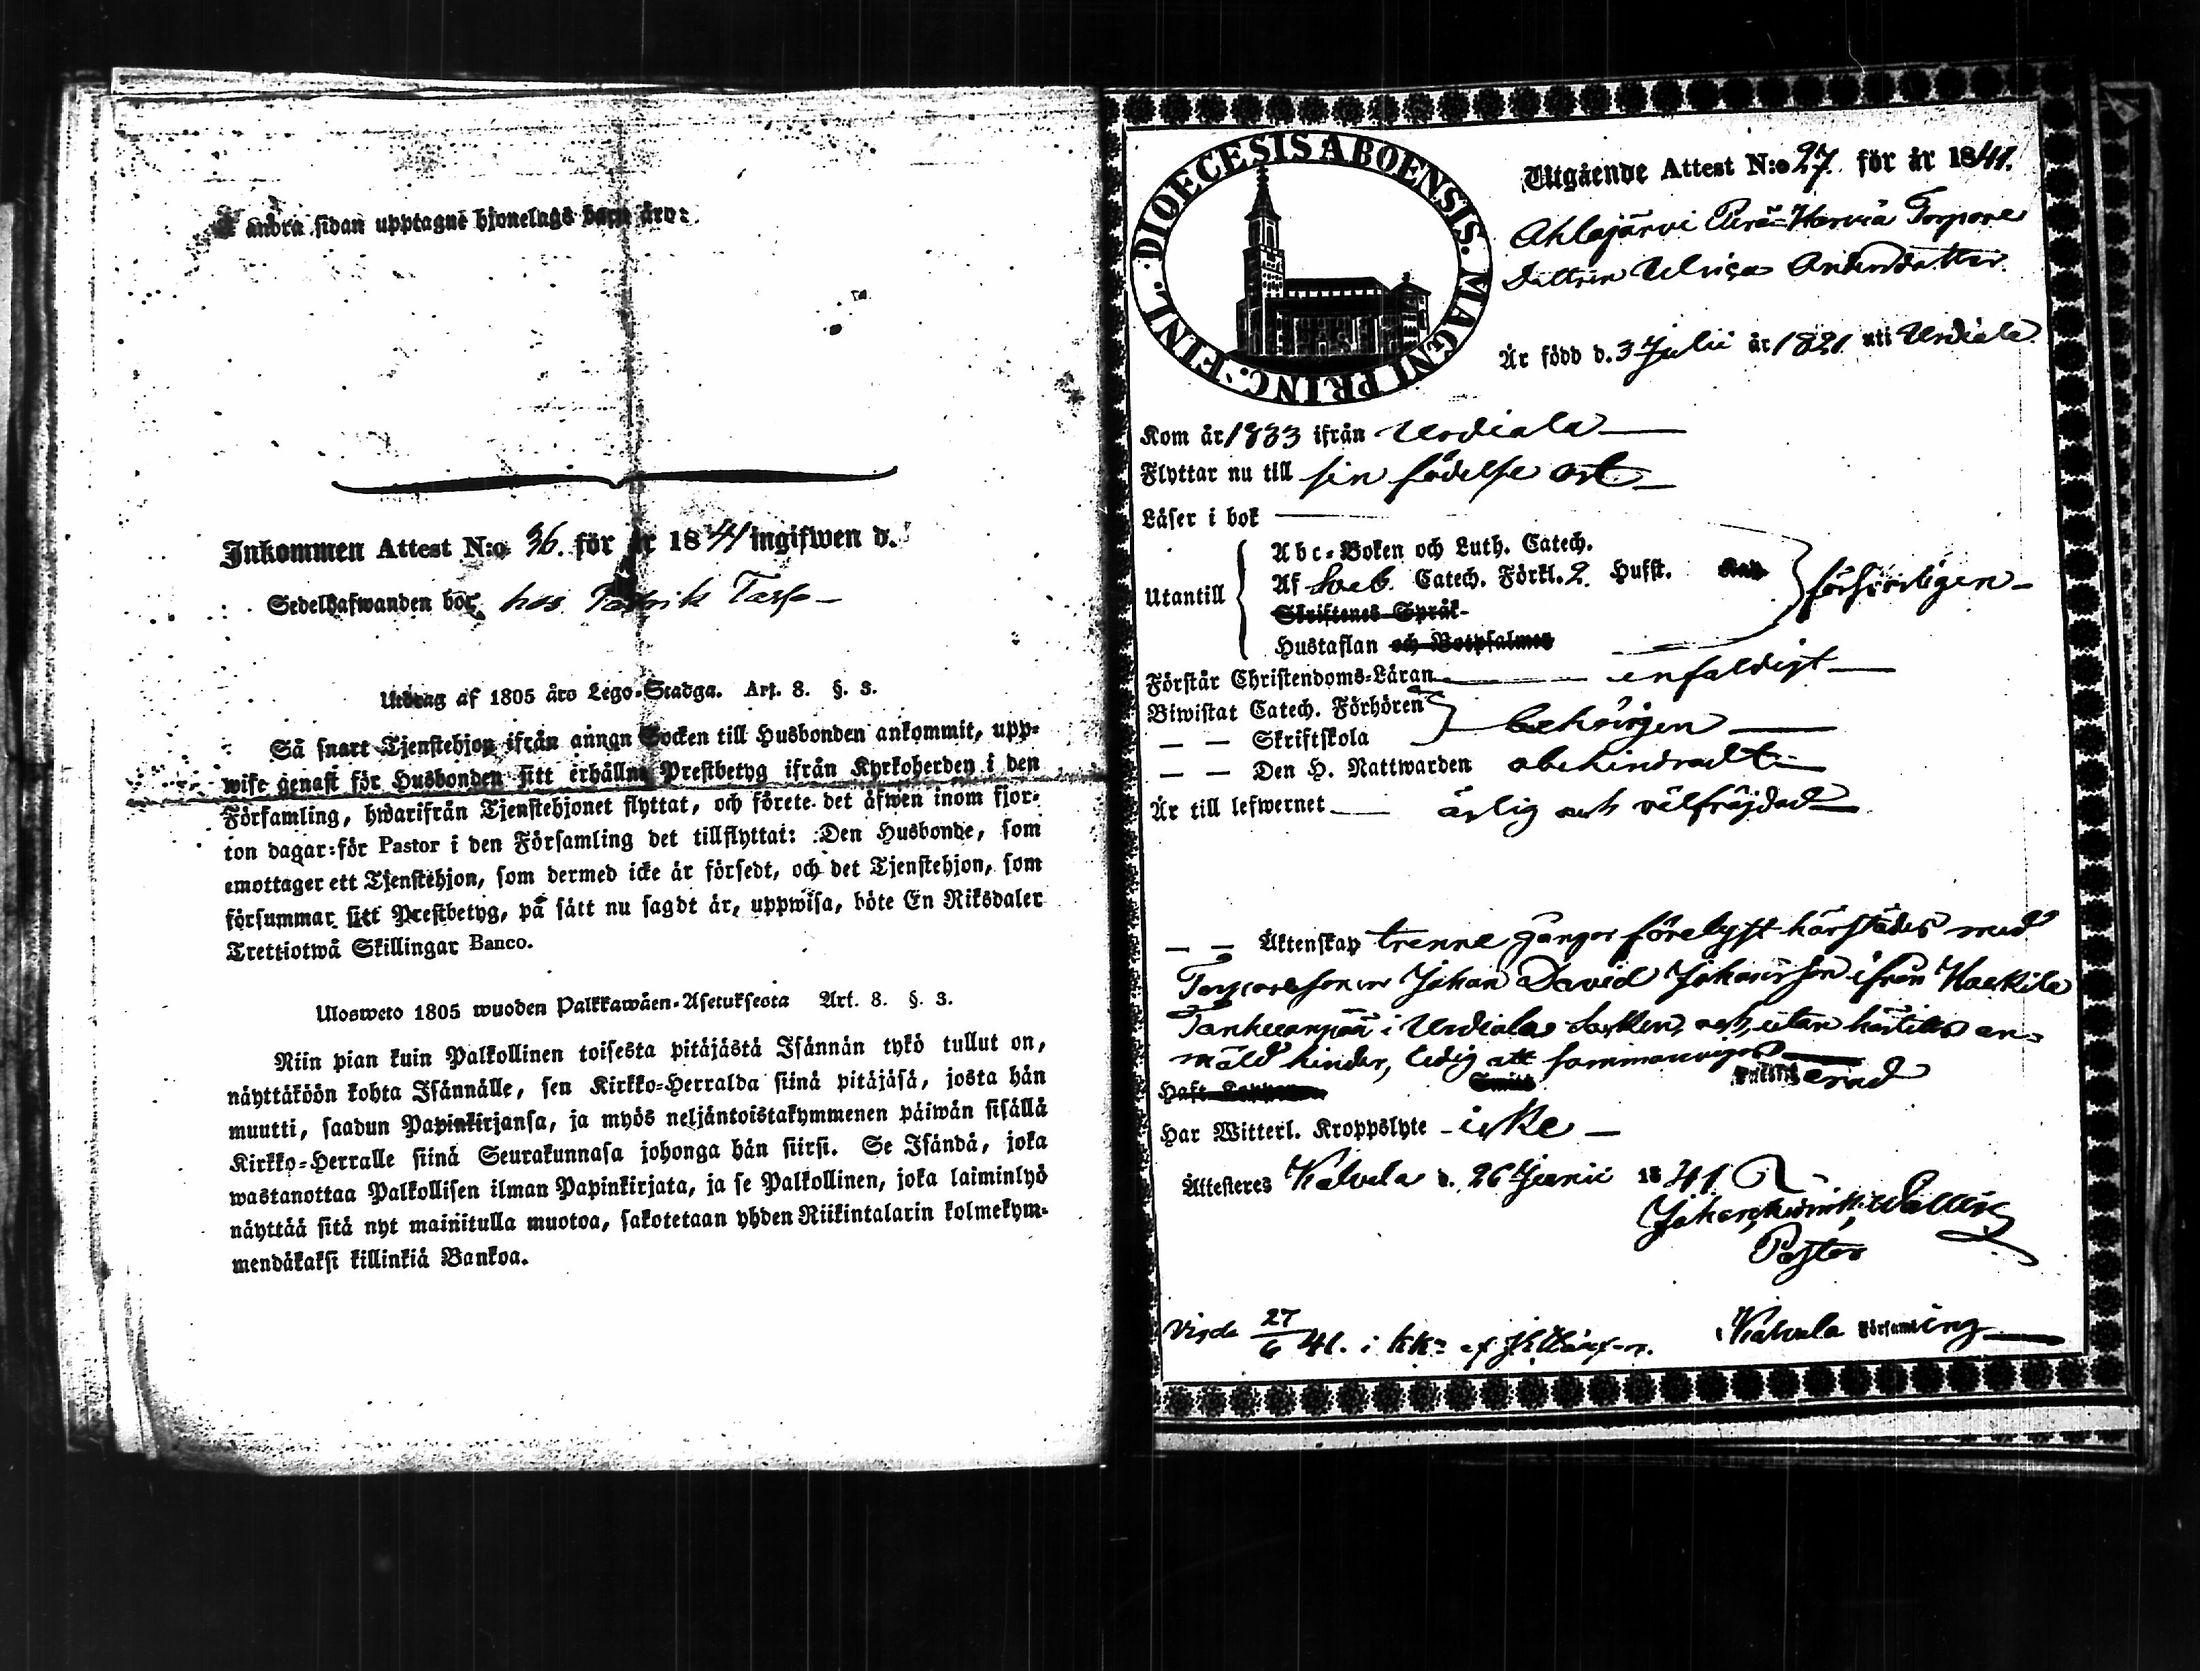 andra sidan upptagne hjonelags barn äro:
Inkommen Attest N:o 36. för år 1841 ingifwen d.
Sedelhafwanden bor hos
Utdrag af 1805 års Lego-Stadga. Art. 8. §. 3.
Så snart Tjenstehjon ifrån annan Socken till Husbonden ankommit, upp-
wise genast för Husbonden sitt erhållne Prestbetyg ifrån Kyrkoherden i den
Församling, hwarifrån Tjenstehjonet flyttat, och förete det äfwen inom fjor-
ton dagar för Pastor i den Församling det tillflyttat: Den Husbonde, som
emottager ett Tjenstehjon, som dermed icke är försedt, och det Tjenstehjon, som
försummar sitt Prestbetyg, på sätt nu sagdt är, uppwisa, böte En Riksdaler
Trettiotwå Skillingar Banco.
Ulosweto 1805 wuoden Palkkawäen-Asetuksesta Art. 8. §. 3.
Niin pian kuin Palkollinen toisesta pitäjästä Isännän tykö tullut on,
näyttäköön kohta Isännälle, sen Kirkko-Herralda siinä pitäjäsä, josta hän
muutti, saadun Papinkirjansa, ja myös neljäntoistakymmenen päiwän sisällä
Kirkko-Herralle siinä Seurakunnasa johonga hän siirsi. Se Isändä, joka
wastanottaa Palkollisen ilman Papinkirjata, ja se Palkollinen, joka laiminlyö
näyttää sitä nyt mainitulla muotoa, sakotetaan yhden Riikintalarin kolmekym-
mendäkaksi killinkiä Bankoa.
DIOECESIS ABOENSIS. MAGNI PRINC. FINL.
Utgående Attest N:o 27. för år 1841.
Ahlajärvi Torpare
Dottren Ulrica Andersdotter
Är född d. 3 Julii år 1821 uti Urdiala
Kom år 1833 ifrån Urdiala
Flyttar nu till sin födelse ort
Läser i bok
Utantill
Abc-Boken och Luth. Catech.
Af Sveb. Catech. Förkl. 2 Hufst.
Skriftenes Språk-
Hustaflan och Botpsalmer
försvarligen
Förstår Christendoms-Läran enfaldigt
Biwistat Catech. Förhören
— — Skriftskola
behörigen
— — Den H. Nattwarden obehindradt
Är till lefwernet ärlig och välfräjdad
— — Äktenskap trenne gånger förelyst härstädes med
Torparesonen Johan David Johansson ifrån
i Urdiala Socken, och utan härtills an-
mäld hinder, ledig att sammanvigas
Haft Koppor
Har Witterl. Kroppslyte - icke -
Attesteres Kalvola d. 26 Junii 1841
Johan
Pastor
Vigde 27/6 41. i
Kalvola Församling